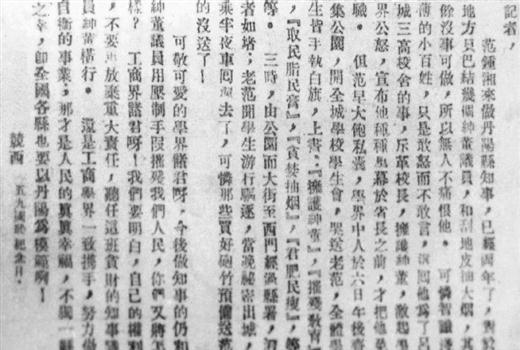 記者,
范鍾湘來做丹陽縣知事,已經兩年了,對於
地方只巴結幾個紳董議員,和刮地皮抽大烟,其
餘沒事可做,所以無人不痛恨他。可憐智識淺
薄的小百姓,只是敢怒而不敢言,因他為了呂
城三高校舍的事,斥革校長,擁護紳董,激起學
界公怒,宣布他種種黑幕於省長之前,才把他
職。但范早大飽私囊,學界中人於六日午後齊
集公園,開全城學校學生會,歡送老范,全體學
生皆手執白旗,上書:『擁護紳董』,『摧殘教育』
,『取民脂民膏』,『貪婪抽烟』,『君肥民瘦』,等
等。三時,由公園而大街至西門經過縣署,觀
者如堵;老范聞學生游行驅逐,當晚秘密出城,
乘半夜車囘去了,可憐那些買好砲竹預備送范
的沒送了!
可敬可愛的學界諸君呀,今後做知事的仍和
紳董議員用壓制手段摧殘我們人民,你們又將怎
樣?工商界諸君呀!我們要明白,自己的權利
,不要再放棄重大責任,聽任這班貪財的知事議
員紳董橫行。還是工商學界一致携手,努力做
自衛的事業,那才是人民的真真幸福,不獨一縣
之幸,卽全國各縣也要以丹陽為模範啊!
競西 五九國恥紀念日.